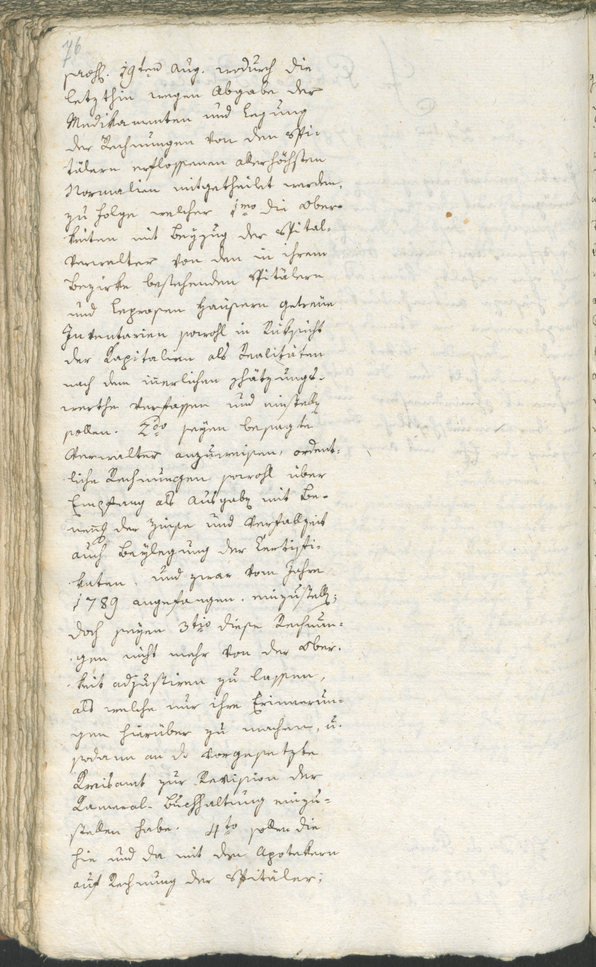 76
praes. 19ten Aug. wodurch die
letzthin wegen Abgabe der
Medikamenten und Legung
der Rechnungen von den Spi-
tälern erflossenen allerhöchsten
Normalien mitgetheilet werden,
zu Folge welcher 1mo die Ober-
keiten mit Beyzug der Spital-
Verwalter von den in ihrem
Bezirke bestehenden Spitälern
und Leprosen Häusern getreue
Inventarien sowohl in Rüksicht
der Kapitalien als Realitäten
nach dem innerlichen Schätzungs-
werthe verfassen und
sollen. 2do seyen besagte
Verwalter anzuweisen, ordent-
liche Rechnungen sowohl über
Empfang als Ausgabe mit Be-
der Zinse und Verfallzeit
auch Beylegung der Certifi-
katen, und zwar vom Jahre
1789 angefangen, einzustellen;
doch seyen 3tio diese Rechnun-
gen nicht mehr von der Ober-
keit adjustiren zu lassen,
als welche nur ihre Erinnerun-
gen hierüber zu machen, u.
sodann an das vorgesetzte
Kreisamt zur Revision der
Kameral-Buchhaltung einzu-
stellen habe. 4to sollen die
hie und da mit den Apotekern
auf Rechnung der Spitäler,